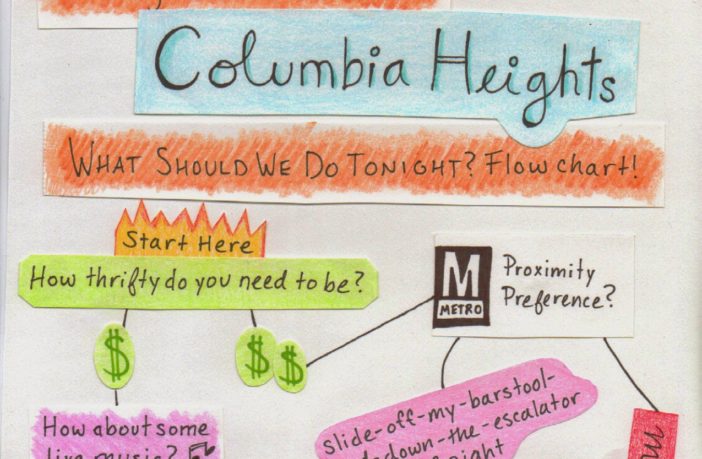 Columbia Heights
WHAT SHOULD WE DO TONIGHT? Flow chart!
Start Here
How thrifty do you need to be?
M
METRO
Proximity
Preference?
$
$ $
How about some
live music?
slide-off-my-barstool-
down-the-escalator
night